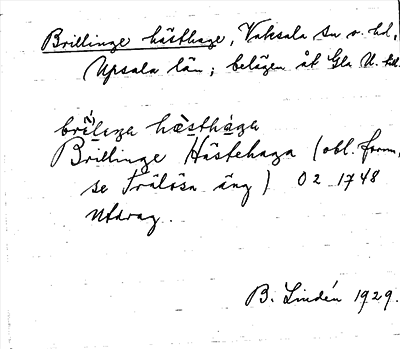 Brillinge hästhage, Vaksala sn o. hd,
Upsala län; belägen åt Gla U. hd.
brilinga hàsthàga
Brillinge Hästehaga (obl. form,
se Trälösa äng) O2 1748
Utdrag.
B. Lindén 1929.